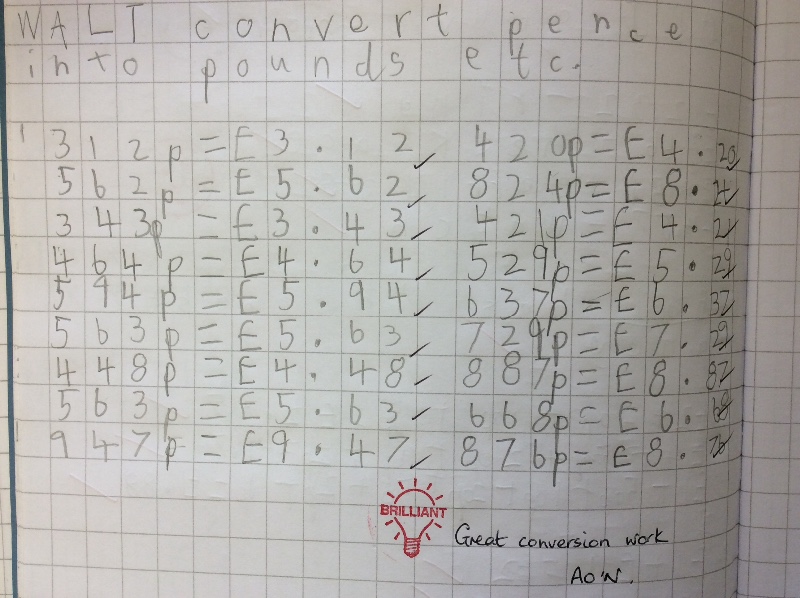 WALT convert pence
into pounds etc.
312p = E3.12 420p = E4.20
562p = E5.62 824p = E8.24
343p = E3.43 421p = E4.21
464p = E4.64 529p = E5.29
594p = E5.94 637p = E6.37
563p = E5.63 729p = E7.29
448p = E4.48 887p = E8.87
563p = E5.63 668p = E6.68
947p = E9.47 876p = E8.76
BRILLIANT
Great conversion work